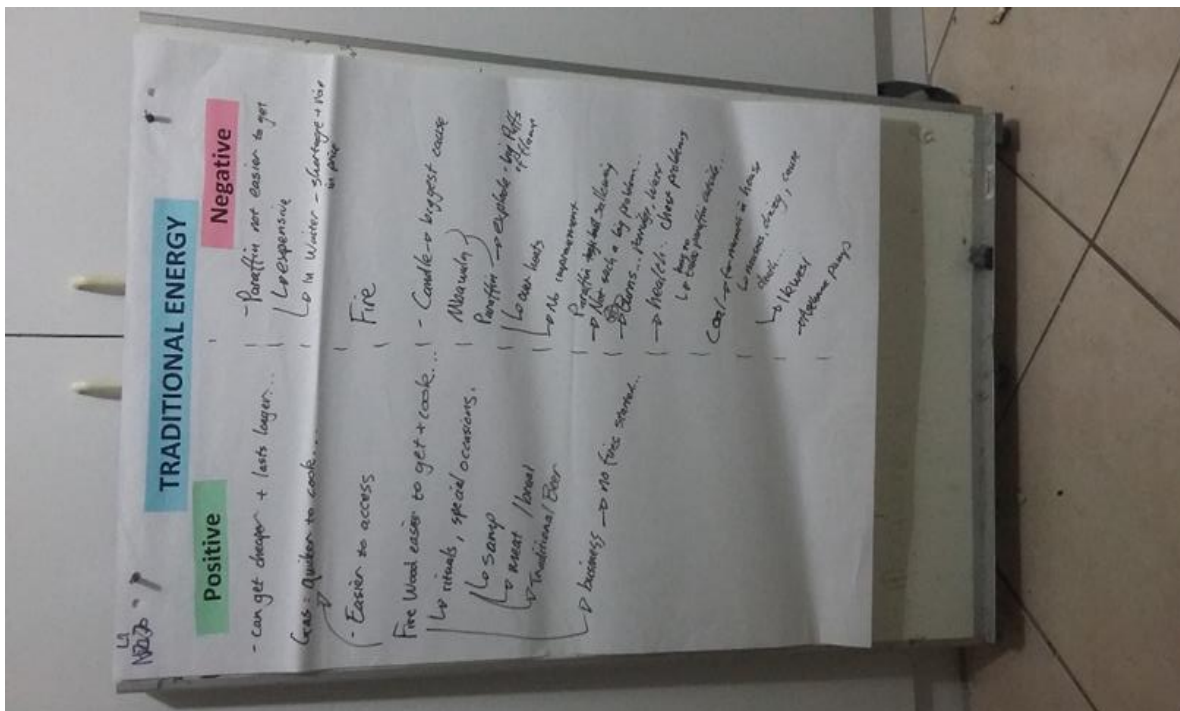 L1
TRADITIONAL ENERGY
Positive
- can get cheaper + lasts longer...
Gas: Quicker to cook...
- Easier to access
Fire Wood easier to get + cook...
rituals, special occasions.
samp
meat
Traditional Beer
business → no fires started...
Negative
- Paraffin not easier to get
expensive
In Winter - shortage + rise in price
Fire
- Candle → biggest cause
Mbawula
Paraffin → explode - big Puffs of flames
over heats
No improvement
Paraffin
→ Not such a big problem...
→ Burns...
→ health: Chest problems
paraffin outside...
Coal → in house
nausea, dizzy, cause
death...